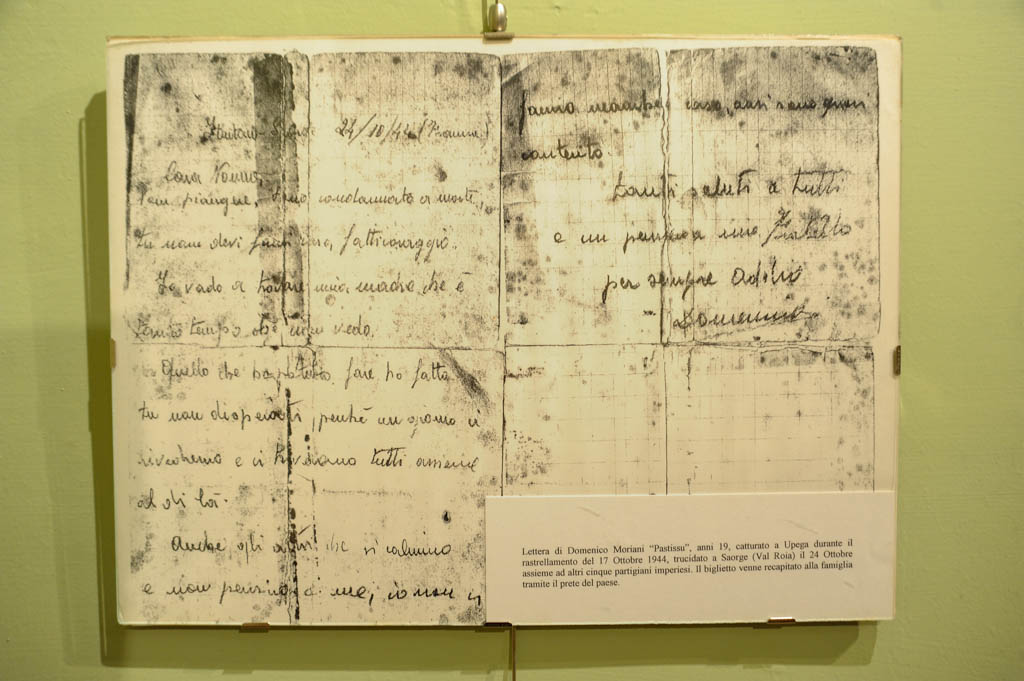 24/10/44
Cara Nonna,
non piangere, sono condannato a morte,
tu non devi farti fatti coraggio.
Io vado a trovare mia madre che è
tanto tempo che non vedo.
Quello che ho potuto fare ho fatto
tu non disperarti, perché un giorno ci
rivedremo e ci troviamo tutti assieme
al di là.
Anche gli altri che si calmino
e non pensino a me, io non ci
fanno caso, anzi sono quasi
contento.
Tanti saluti a tutti
e un fratello
per sempre addio
Domenico
Lettera di Domenico Moriani “Pastissu”, anni 19, catturato a Upega durante il
rastrellamento del 17 Ottobre 1944, trucidato a Saorge (Val Roia) il 24 Ottobre
assieme ad altri cinque partigiani imperiesi. Il biglietto venne recapitato alla famiglia
tramite il prete del paese.